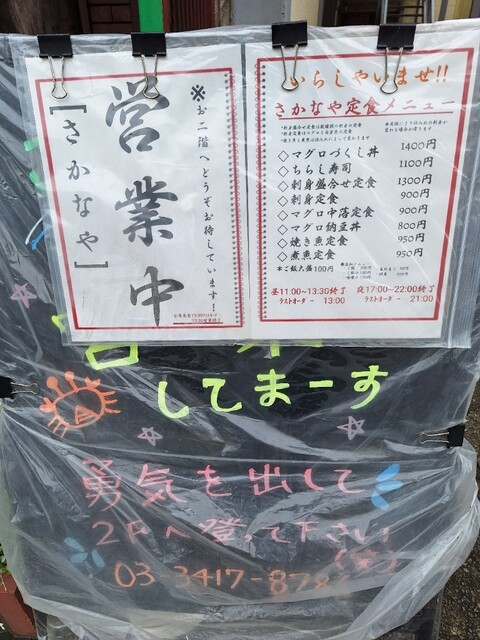 営業中
※お二階へどうぞお待しています！
［さかなや］
いらしゃいませ!!
さかなや定食メニュー
◇マグロづくし丼 1400円
◇ちらし寿司 1100円
◇刺身盛合せ定食 1300円
◇刺身定食 900円
◇マグロ中落定食 900円
◇マグロ納豆丼 800円
◇焼き魚定食 950円
◇煮魚定食 950円
※ご飯大盛100円
昼11:00~13:30終了
ラストオーダー 13:00
夜17:00~22:00終了
ラストオーダー 21:00
してまーす
勇気を出して
2Fへ登って下さい
(笑)
03-3417-87